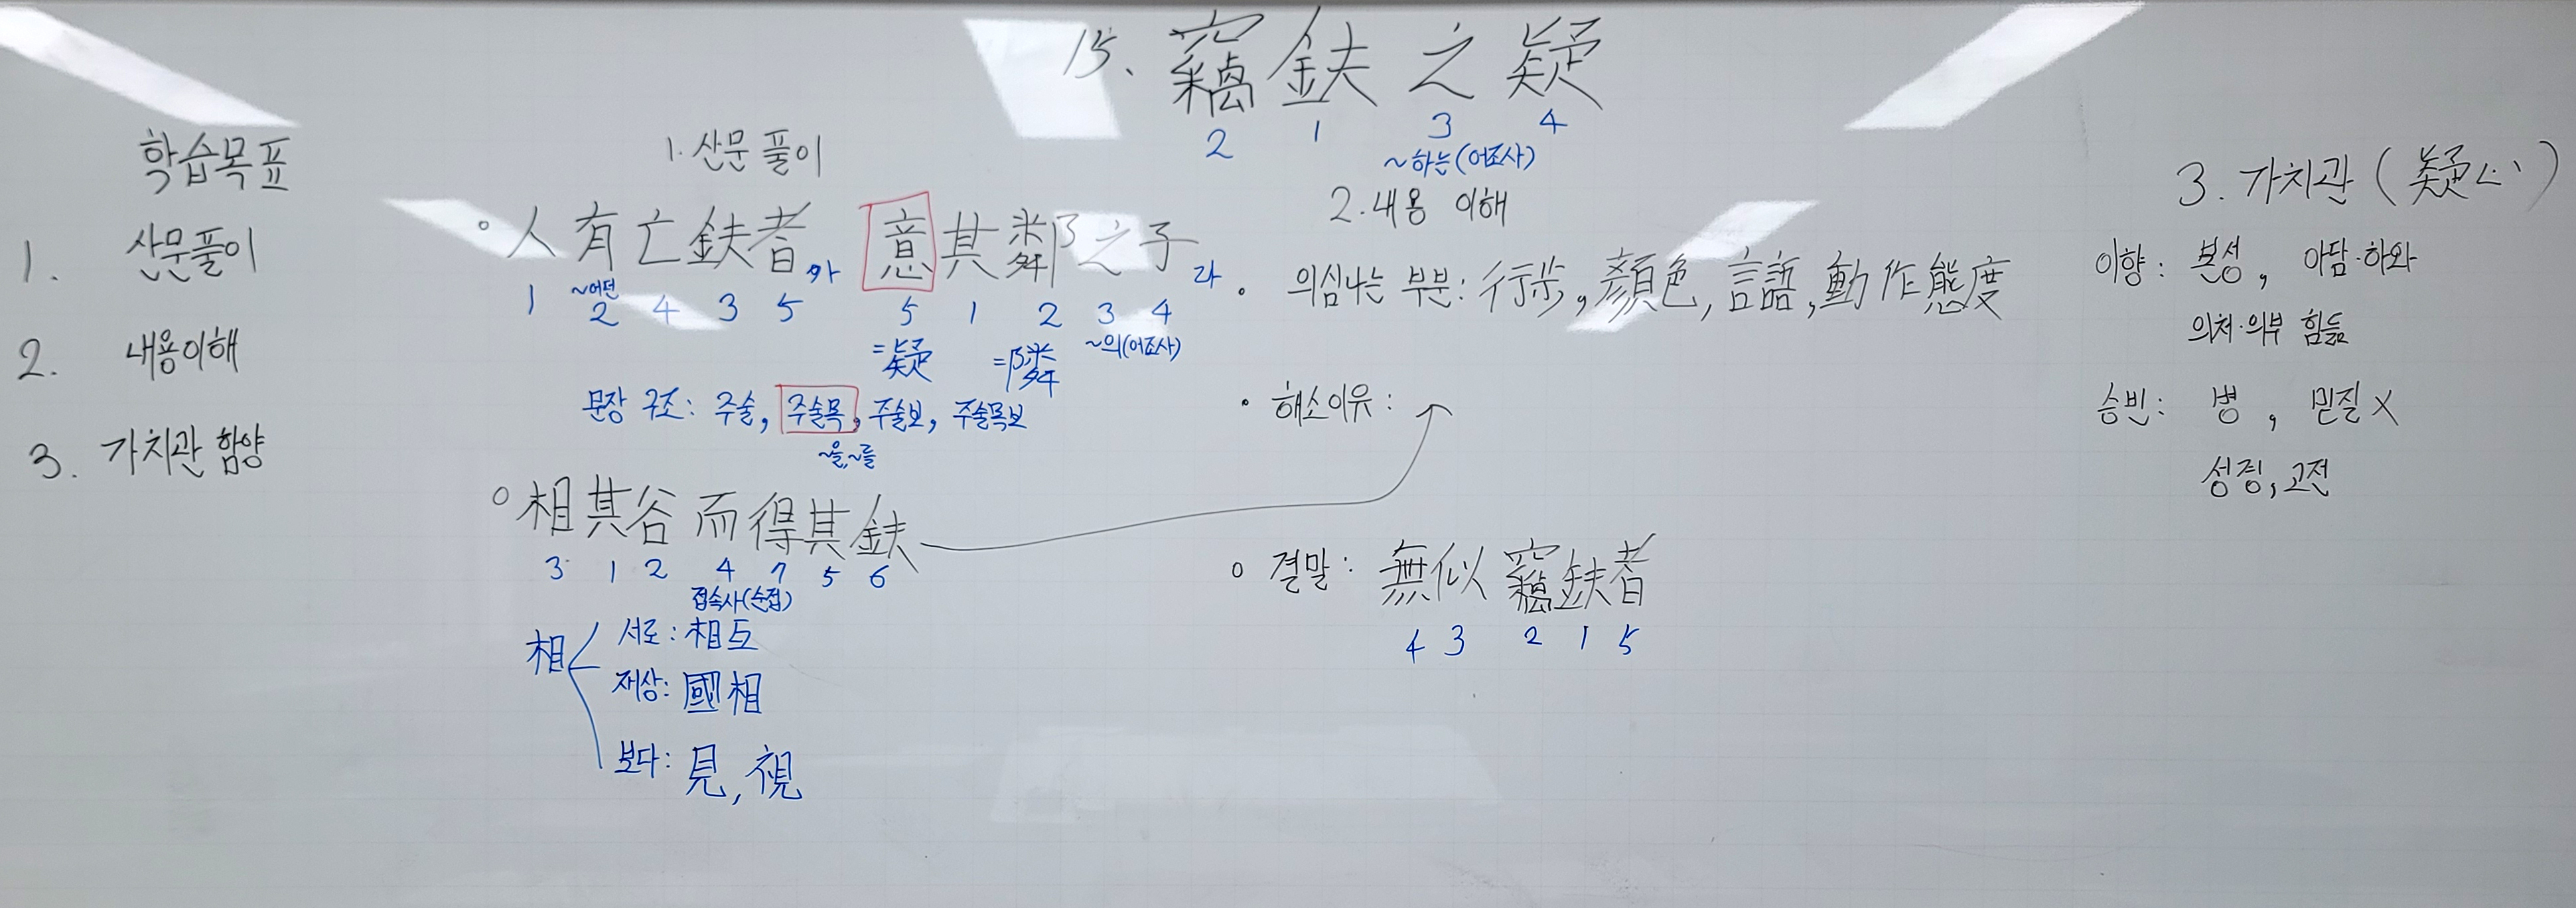 15. 竊鈇之疑
2 1 3 4
~하는(어조사)
학습목표
1. 산문풀이
2. 내용이해
3. 가치관 함양
1. 산문 풀이
○人有亡鈇者, 意其鄰之子라
1 2 4 3 5 5 1 2 3 4
~어떤
=疑 =隣 ~의(어조사)
문장 구조: 주술, 주술목, 주술보, 주술목보
~을,~를
○相其谷而得其鈇
3 1 2 4 7 5 6
접속사(순접)
相 서로: 相互
재상: 國相
보다: 見, 視
2. 내용 이해
· 의심나는 부분: 行步, 顔色, 言語, 動作態度
· 해소이유:
○ 결말: 無似竊鈇者
4 3 2 1 5
3. 가치관 (疑心)
이향: 본성, 아담·하와
의처·의부 힘듦
승빈: 병, 믿질 X
성징, 고전